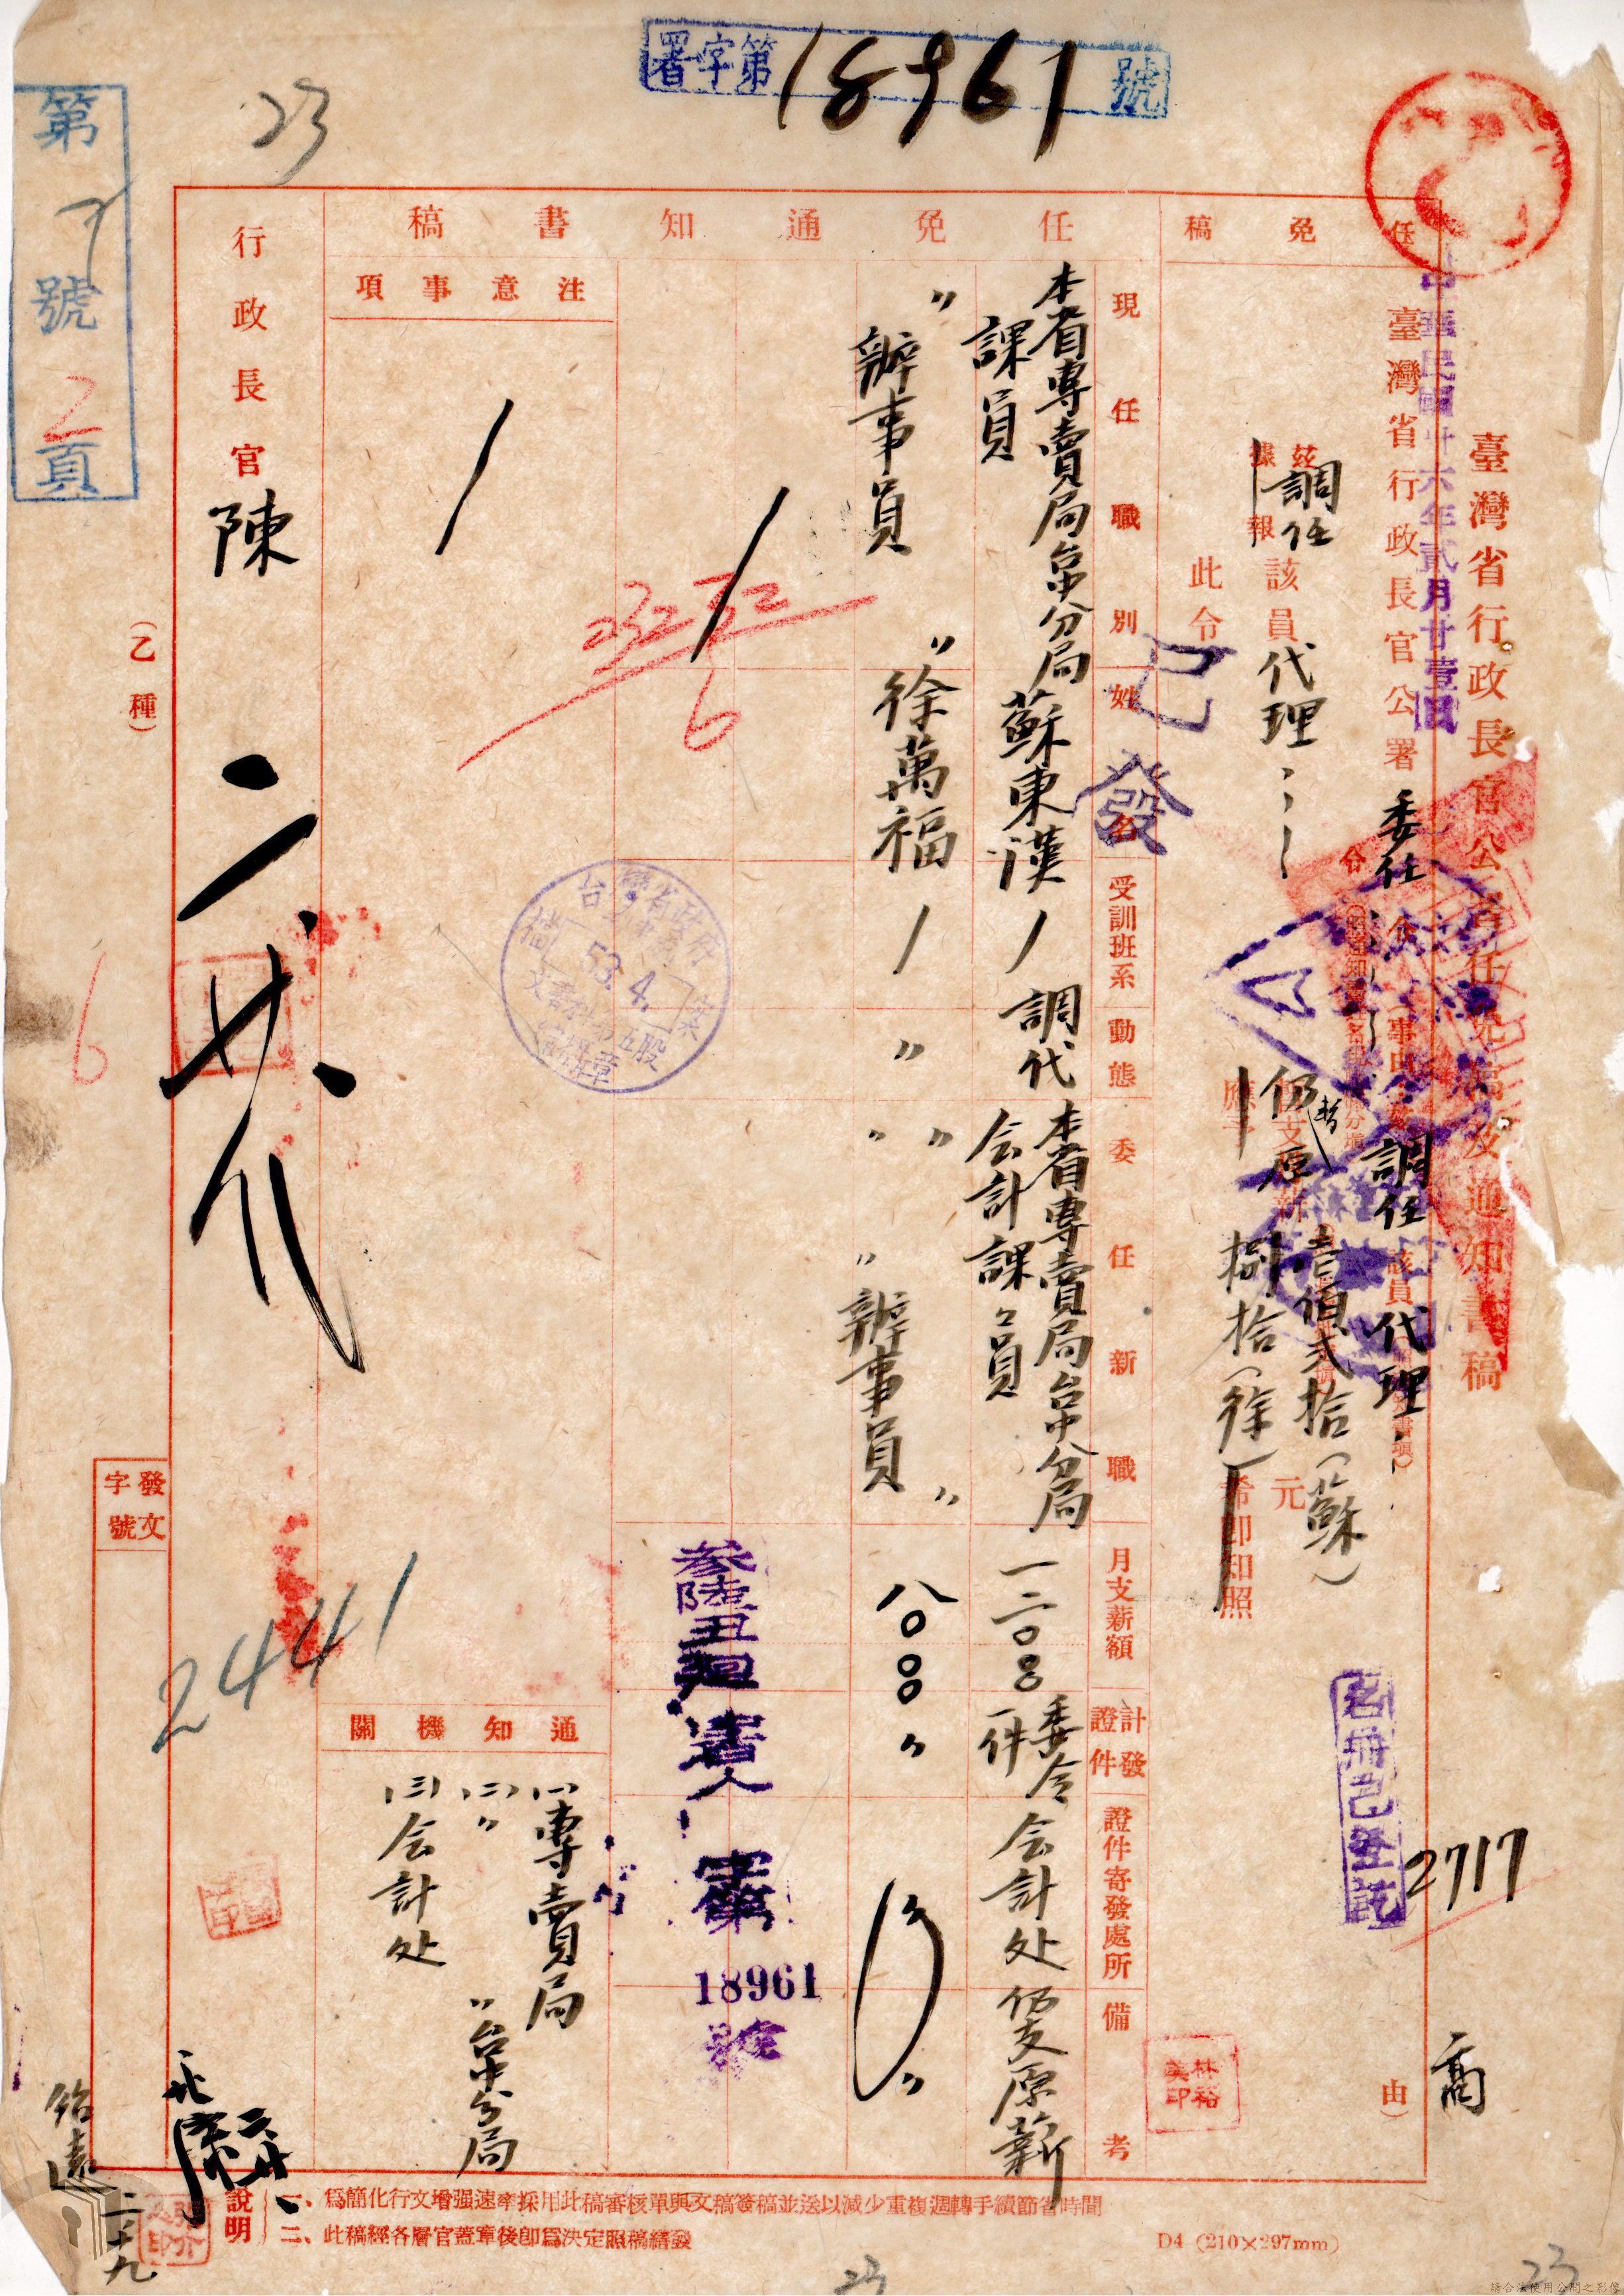 署字第18961號
第
號
2頁
23
臺灣省行政長官公署任免稿及通知書稿
中華民國卅六年貳月廿壹日
任免稿
臺灣省行政長官公署委任令
事由
調任該員代理
由)
茲調任
據報
該員代理
仍暫支原薪
壹佰弍拾(蘇)
捌拾(徐)
元
希即知照
此令
已發
名冊已登記
2717
高
林裕美印
任免通知書稿
現任職別
姓名
受訓班系
動態
委任新職
月支薪額
計發證件
證件寄發處所
備考
本省專賣局台中分局課員
蘇東漢
/
調代
本省專賣局台中分局会計課課員
一二〇〇〇
委令一件
会計处
仍支原薪
〃辦事員
〃徐萬福
/
〃
〃〃〃辦事員〃
八〇〇〇
〃
〃
6
參陸丑廻署人字第
18961
號
台灣省政府
53.4.
檔案
文書科第五股
編檔章
注意事項
通知機關
㈠專賣局
㈡〃〃台中分局
㈢会計处
行政長官陳
二、廿八
2441
(乙種)
6
發文字號
二、十九
說明
一、為簡化行文增強速率採用此稿審核單與文稿簽稿並送以減少重複週轉手續節省時間
二、此稿經各層官蓋章後卽為決定照稿繕發
D4 (210×297mm)
23
23
請合法使用公開之影像